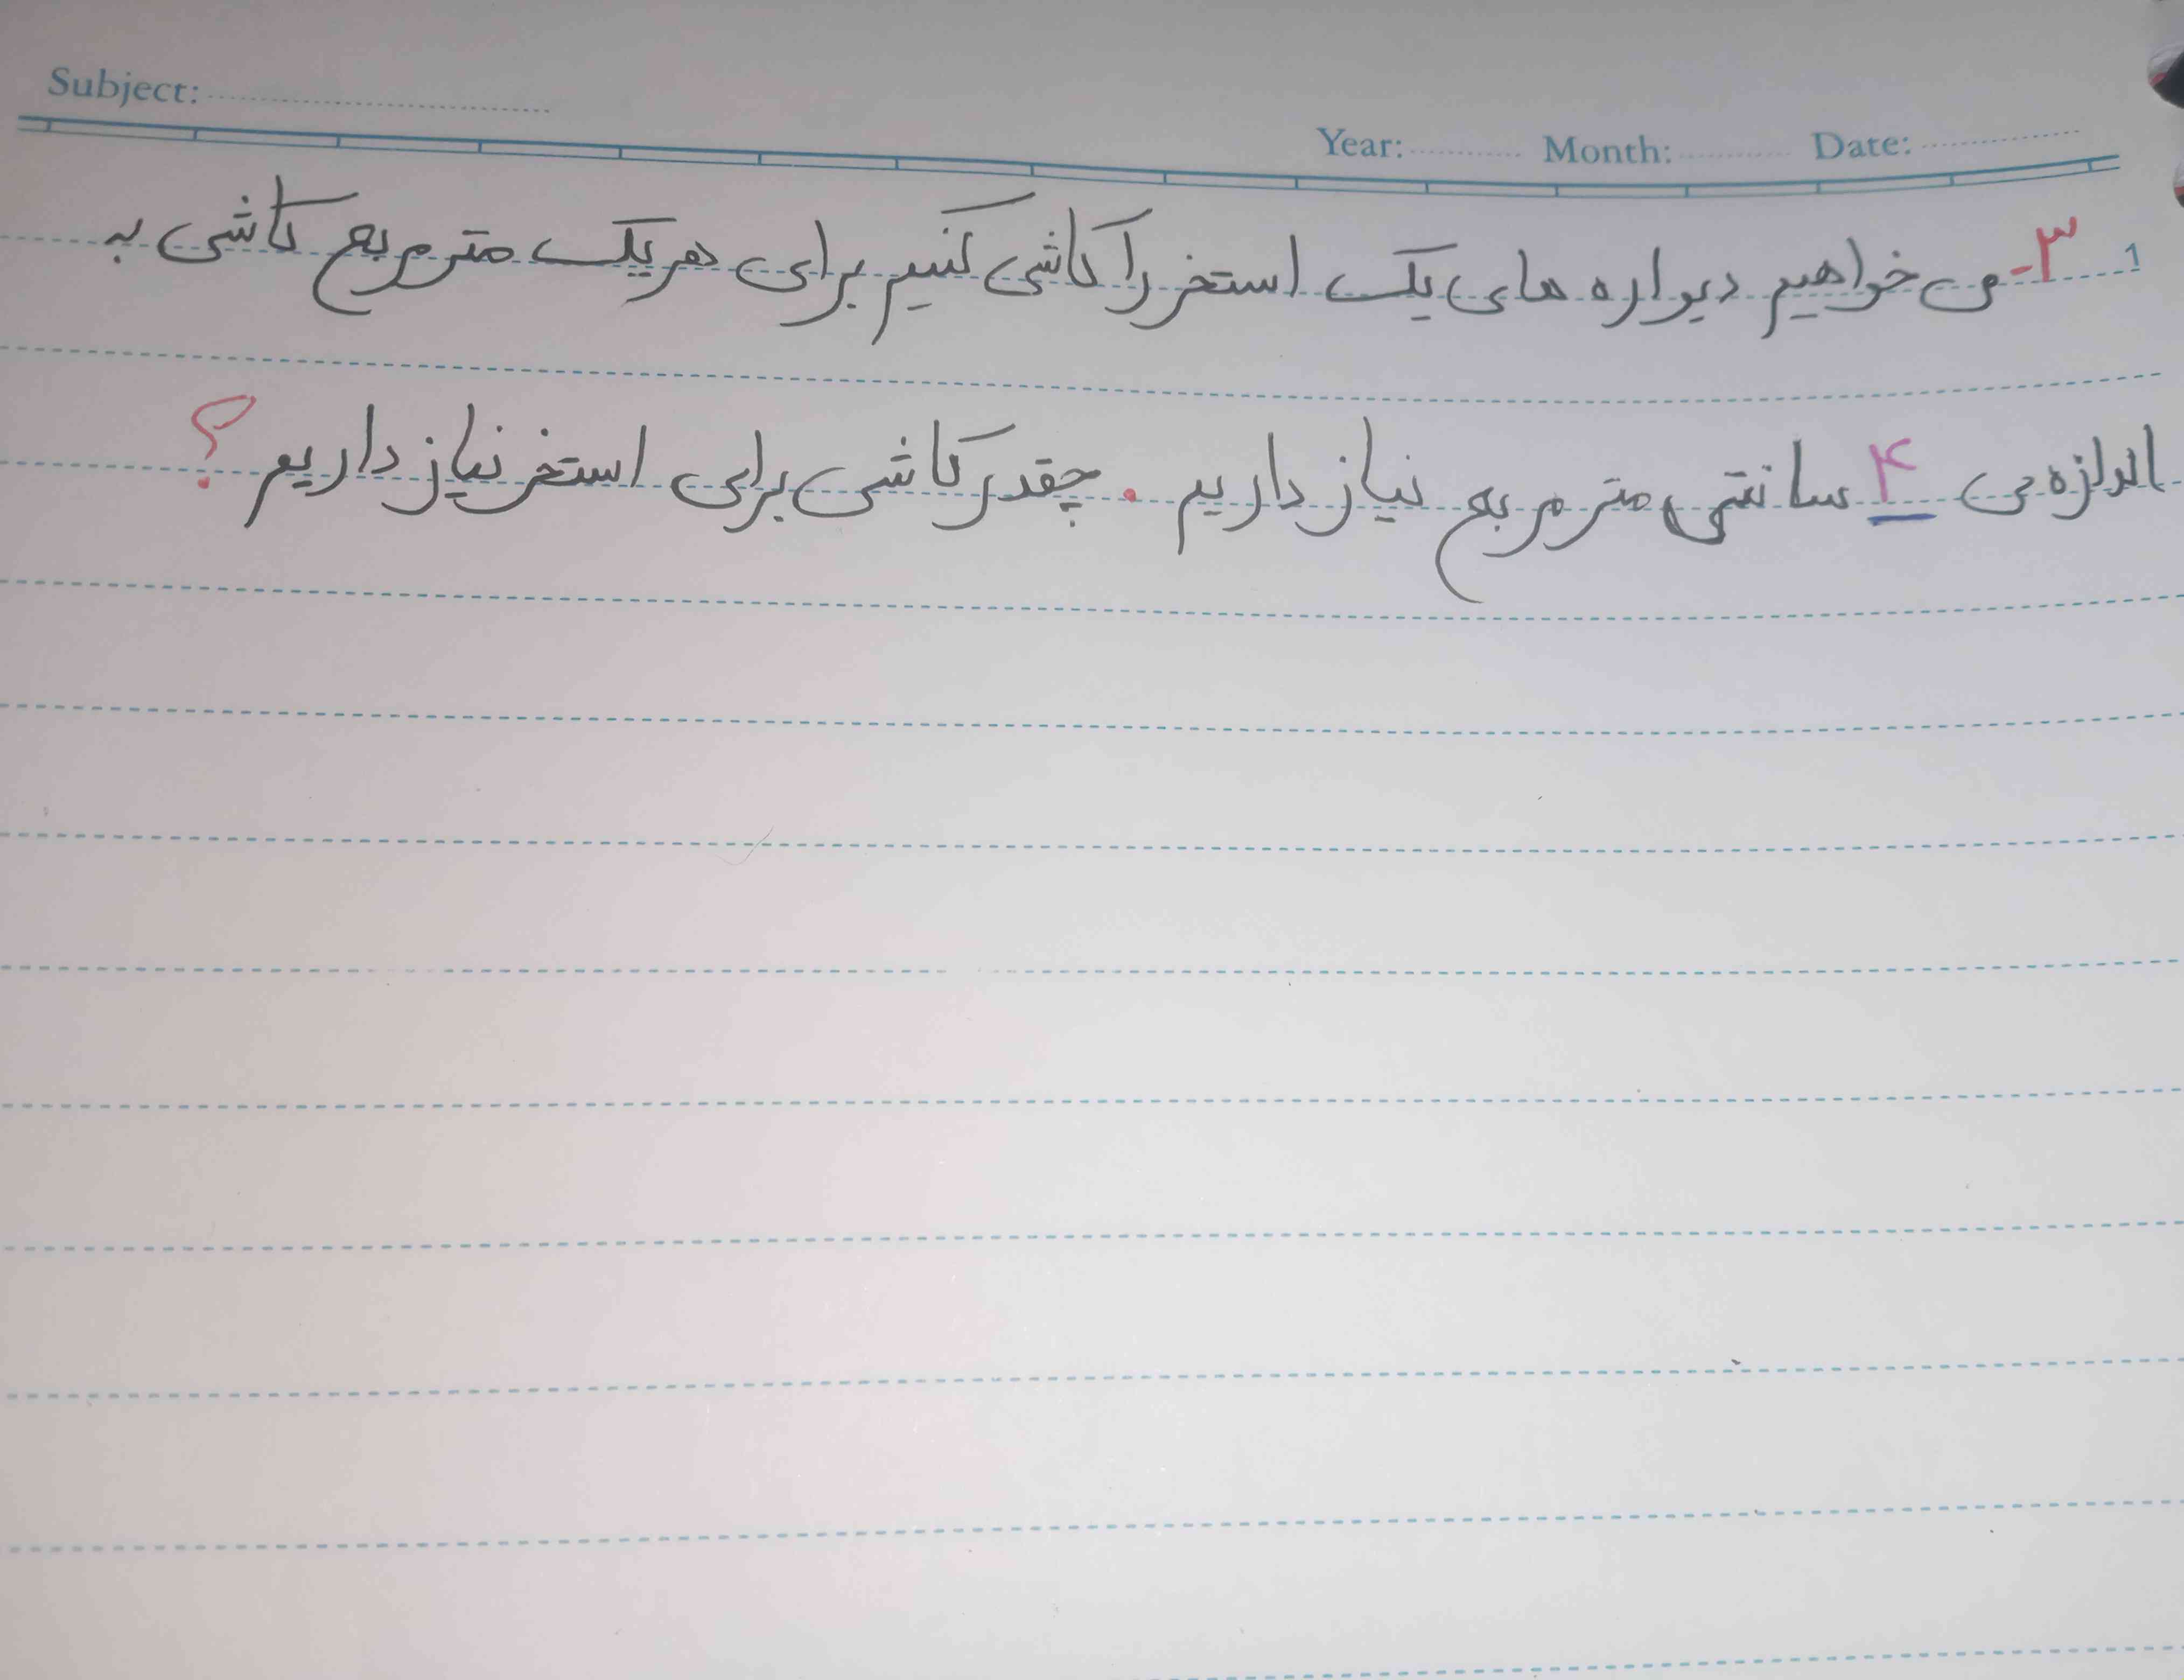 Subject:
Year: Month: Date:
1 ۳- می خواهیم دیواره های یک استخر را کاشی کنیم برای هر یک متر مربع کاشی به
اندازه ی ۴ سانتی متر مربع نیاز داریم . چقدر کاشی برای استخر نیاز داریم ؟